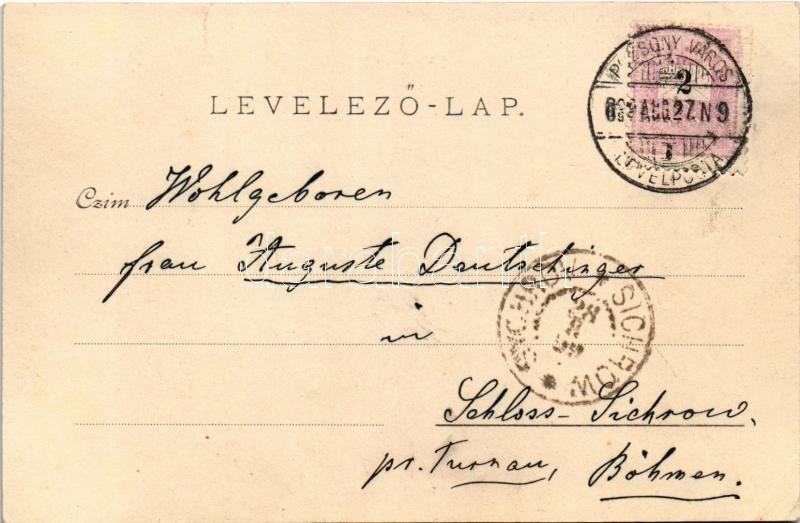 POZSONY VÁROS
2
899 AUG. 27. N 9
LEVÉLPOSTA
LEVELEZŐ-LAP.
Czim Wohlgeboren
frau Auguste Deutschinger
in
SICHROW
Schloss-Sichrow,
pr. Turnau, Böhmen.